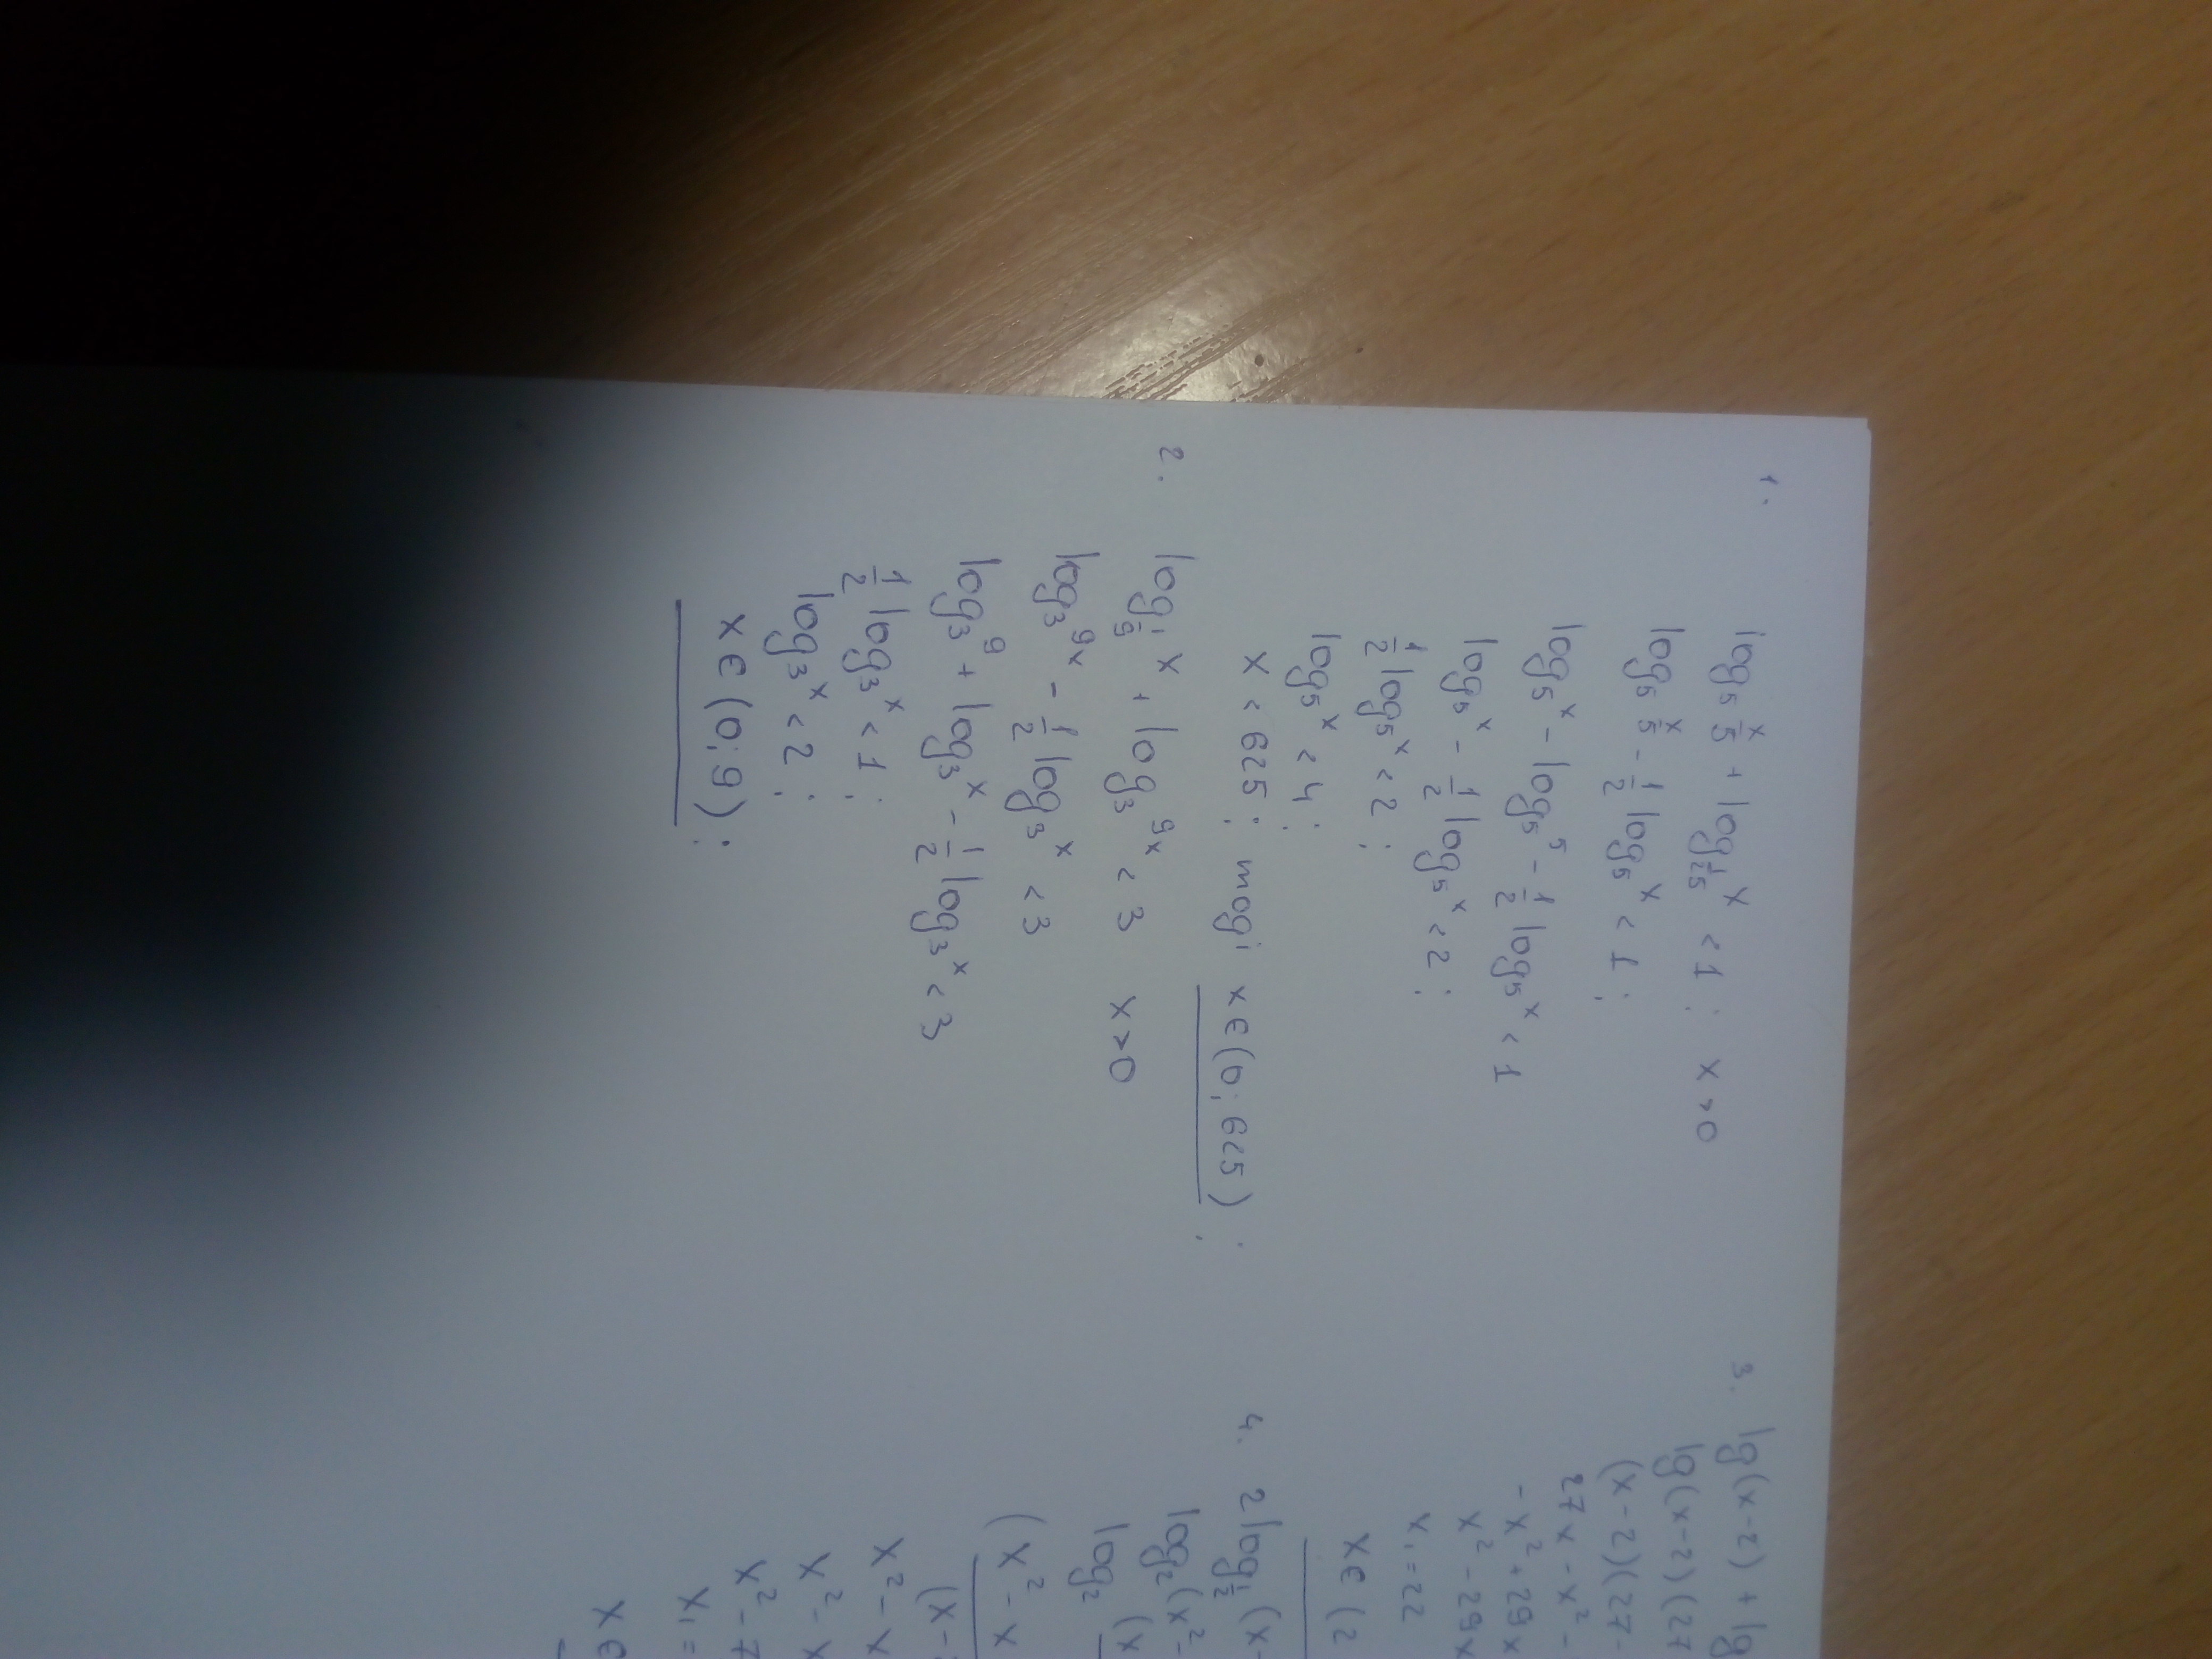 1. log₅ x/5 + log_1/25 x < 1 ; x > 0
log₅ x/5 - 1/2 log₅ x < 1 ;
log₅ x - log₅ 5 - 1/2 log₅ x < 1
log₅ x - 1/2 log₅ x < 2 ;
1/2 log₅ x < 2 ;
log₅ x < 4 ;
x < 625 ; mogi x ∈ (0; 625) ;
2. log_1/9 x + log₃ 9x < 3 x > 0
log₃ 9x - 1/2 log₃ x < 3
log₃ 9 + log₃ x - 1/2 log₃ x < 3
1/2 log₃ x < 1 ;
log₃ x < 2 ;
x ∈ (0; 9) ;
3. lg(x-2) + lg
lg(x-2)(27
(x-2)(27-
27x - x² -
-x² + 29x
x² - 29x
x₁ = 22
x ∈ (2
4. 2 log_1/2 (x-
log₂ (x² -
log₂ x)
x² - x)
x
- x)
x - x²
x - x²
7 - x²
x₁ =
x ∈